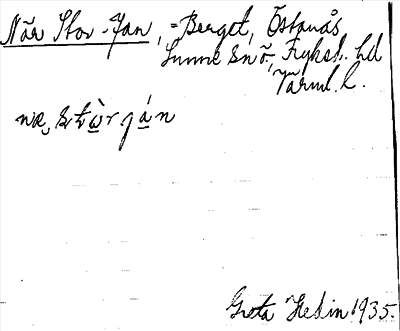 När Stor-Jan, =Berget, Östanås
Sunne sn ö, Fryksd. hd
Värml. l.
næ, stὼr ján
Greta Hedin 1935.